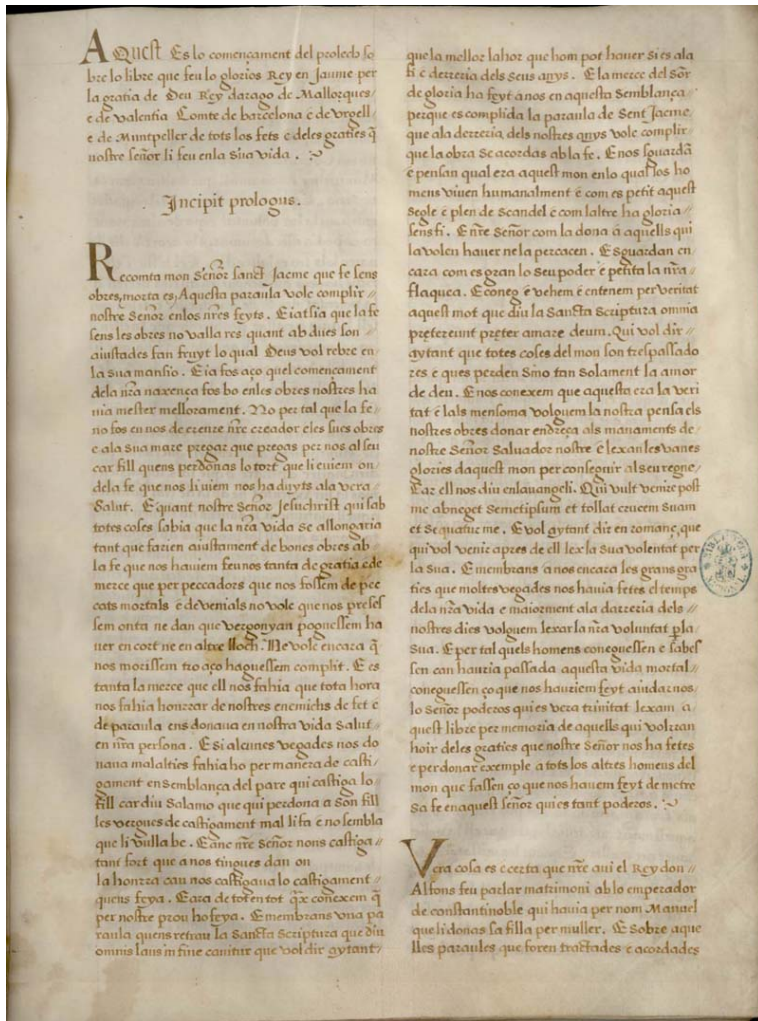 AQuest Es lo començament del prolech so
bre lo libre que feu lo glorios Rey en Jaume per
la gratia de Deu Rey darago de Mallorques /
e de valentia Comte de barcelona e de vrgell /
e de Muntpeller de tots los fets e deles graties q̃
nostre señor li feu enla sua vida .
Incipit prologus.
Recomta mon Señor sanct Jacme que fe sens
obres, morta es, Aquesta paraula volc complir //
nostre Señor enlos nr̃es feyts . E iatsia que la fe
sens les obres no valla res quant abdues son /
aiustades fan fruyt lo qual Deus vol rebre en
la sua mansio . E ia fos aço quel començament
dela nr̃a naxença fos bo enles obres nostres ha
uia mester mellorament . No per tal que la fe /
no fos en nos de creure nr̃e creador e les sues obres
e ala sua mare pregar que pregas per nos al seu
car fill quens perdonas lo tort que li euiem on /
dela fe que nos li uiem nos ha duyts ala vera /
Salut . E quant nostre Señor Jesuchrist qui sab
totes coses sabia que la nr̃a vida se allongaria
tant que farien aiustament de bones obres ab /
la fe que nos hauiem feu nos tanta de gratia e de
merce que per peccadors que nos fossem de pec
cats mortals e de venials no volc que nos presés
sem onta ne dan que vergonyan poguessem ha
uer en cort ne en altre lloch. Ne volc encara q̃
nos morissem tro aço haguessem complit . E es
tanta la merce que ell nos fahia que tota hora
nos fahia honrrar de nostres enemichs de fet e
de paraula ens donaua en nostra vida Salut /
en nr̃a persona . E si alcunes vegades nos do
naua malalties fahia ho per manera de casti /
gament en semblança del pare qui castiga lo
fill car diu Salamo que qui perdona a son fill
les vergues de castigament mal li fa e no sembla
que li vulla be . E anc nr̃e Señor nons castiga //
tant fort que a nos tingues dan on
la honrra cau nos castigaua lo castigament //
quens feya . E ara de tot en tot q̃x conexem q̃
per nostre prou ho feya . E membrans vna pa
raula quens retrau la Sancta Scriptura que diu
omnis laus in fine canitur que vol dir aytant /
que la mellor lahor que hom pot hauer si es ala
fi e derreria dels seus anys . E la merce del Sõr
de gloria ha feyt a nos en aquesta semblança /
perque es complida la paraula de Sent Jacme,
que ala derreria dels nostres anys volc complir /
que la obra se acordas ab la fe . E nos sguardã
e pensan qual era aquest mon enlo qual los ho
mens viuen humanalment e com es petit aquest
segle e plen de Scandel e com laltre ha gloria //
sens fi . E nr̃e Señor com la dona a aquells qui
la volen hauer ne la percacen . E sguardan en
cara com es gran lo seu poder e petita la nr̃a
flaquea . E coneg e vehem e entenem per veritat
aquest mot que diu la Sancta Scriptura omnia
prętereunt pręter amare deum . Qui vol dir /
aytant que totes coses del mon son trespassado
res e ques perden sino tan solament la amor
de deu . E nos conexem que aquesta era la veri
tat e lals mensoma volguem la nostra pensa els
nostres obres donar endreça als manaments de /
nostre Señor Saluador nostre e lexan les vanes
glories daquest mon per conseguir al seu regne /
Car ell nos diu enlauangeli . Qui vult venire post
me abneget semetipsum et tollat crucem suam
et sequatur me . E vol aytant dir en romanç, que
qui vol venir apres de ell lex la sua volentat per
la sua . E membrans a nos encara les grans gra
ties que moltes vegades nos hauia fetes el temps
dela nr̃a vida e maiorment ala darreria dels //
nostres dies volguem lexar la nr̃a voluntat p̱ la
sua . E per tal quels homens coneguessen e sabes
sen can hauria passada aquesta vida mortal /
coneguessen ço que nos hauriem feyt aiudarnos /
lo Señor poderos qui es vera trinitat lexam a
quest libre per memoria de aquells qui volrran
hoir deles graties que nostre Señor nos ha fetes
e per donar exemple a tots los altres homens del
mon que fassen ço que nos hauem feyt de metre
sa fe en aquest señor qui es tant poderos .
Vera cosa es e certa que nr̃e aui el Rey don //
Alfons feu parlar matrimoni ab lo emperador
de constantinoble qui hauia per nom Manuel
que li donas sa filla per muller . E Sobre aque
lles paraules que foren tractades e acordades